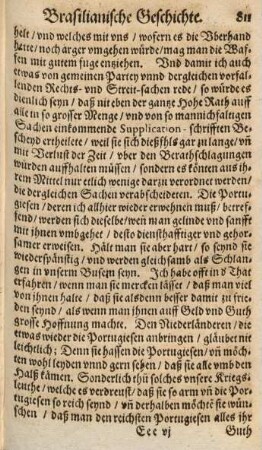 Brasilianische Geschichte. 811
helt / vnd welches mit vns / wofern es die Vberhand
hette / noch arger vmgehen würde / mag man die Waf-
fen mit gutem fuge enziehen. Vnd damit ich auch
etwas von gemeinen Partey vnnd dergleichen vorfal-
lenden Rechts- vnd Streit-sachen rede / so würde es
dienlich seyn / daß nit eben der gantze Hohe Rath auff
alle in so grosser Menge / vnd von so mannichfaltigen
Sachen einkommende Supplication-schrifften Be-
scheyd ertheilete / weil sie sich dießfals gar zu lange / vñ
mit Verlust der Zeit / vber den Berathschlagungen
würden auffhalten müssen / sondern es könten aus ih-
rem Mittel nur etlich wenige darzu verordnet werden /
die dergleichen Sachen verabscheideten. Die Portu-
giesen / deren ich allhier wieder erwehnen muß / betref-
fend / werden sich dieselbe / weñ man gelinde vnd sanfft
mit ihnen vmbgehet / desto diensthafftiger vnd gehor-
samer erweisen. Hält man sie aber hart / so seynd sie
wiederspänstig / vnd werden gleichsamb als Schlan-
gen in vnserm Busen seyn. Ich habe offt in d That
erfahren / wenn man sie mercken lässet / daß man viel
von ihnen halte / daß sie alsdenn besser damit zu frie-
den seynd / als wenn man ihnen auff Geld vnd Guth
grosse Hoffnung machte. Den Niederländeren / die
etwas wieder die Portugiesen anbringen / gläubet nit
leichtlich; Denn sie hassen die Portugiesen / vñ möch-
ten wohl leyden vnnd gern sehen / daß sie alle vmb den
Halß kämen. Sonderlich thū solches vnsere Kriegs-
leuthe / welche es verdreust / daß sie so arm vñ die Por-
tugiesen so reich seynd / vñ derhalben möchtē sie wün-
schen / daß man den reichsten Portugiesen alles ihr
Eee vj Guth